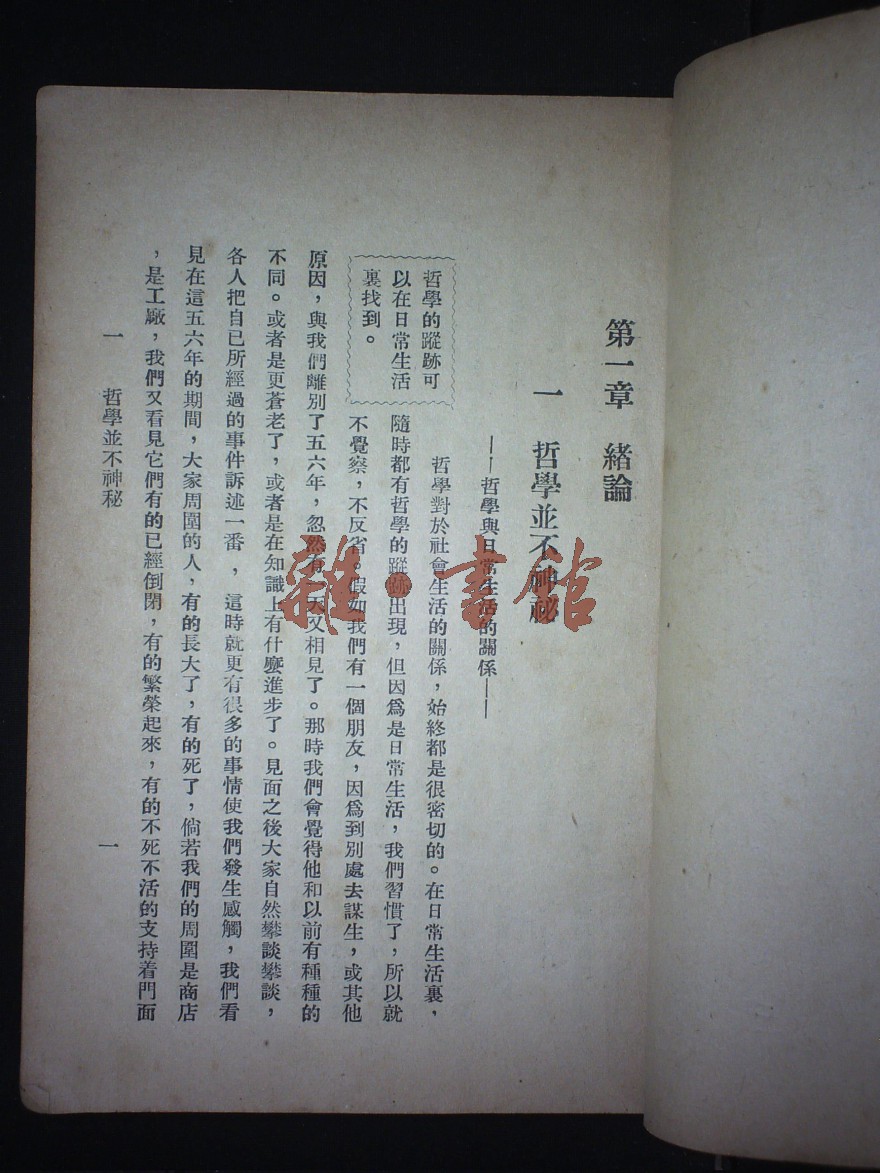 第一章 緒論
一 哲學並不神祕
——哲學與日常生活的關係——
哲學的蹤跡可
以在日常生活
裏找到。
哲學對於社會生活的關係，始終都是很密切的。在日常生活裏，
隨時都有哲學的蹤跡出現，但因爲是日常生活，我們習慣了，所以就
不覺察，不反省。假如我們有一個朋友，因爲到別處去謀生，或其他
原因，與我們離別了五六年，忽然有一天又相見了。那時我們會覺得他和以前有種種的
不同。或者是更蒼老了，或者是在知識上有什麼進步了。見面之後大家自然攀談攀談，
各人把自已所經過的事件訴述一番，這時就更有很多的事情使我們發生感觸，我們看
見在這五六年的期間，大家周圍的人，有的長大了，有的死了，倘若我們的周圍是商店
，是工廠，我們又看見它們有的已經倒閉，有的繁榮起來，有的不死不活的支持着門面
一 哲學並不神祕
一
雜·書館